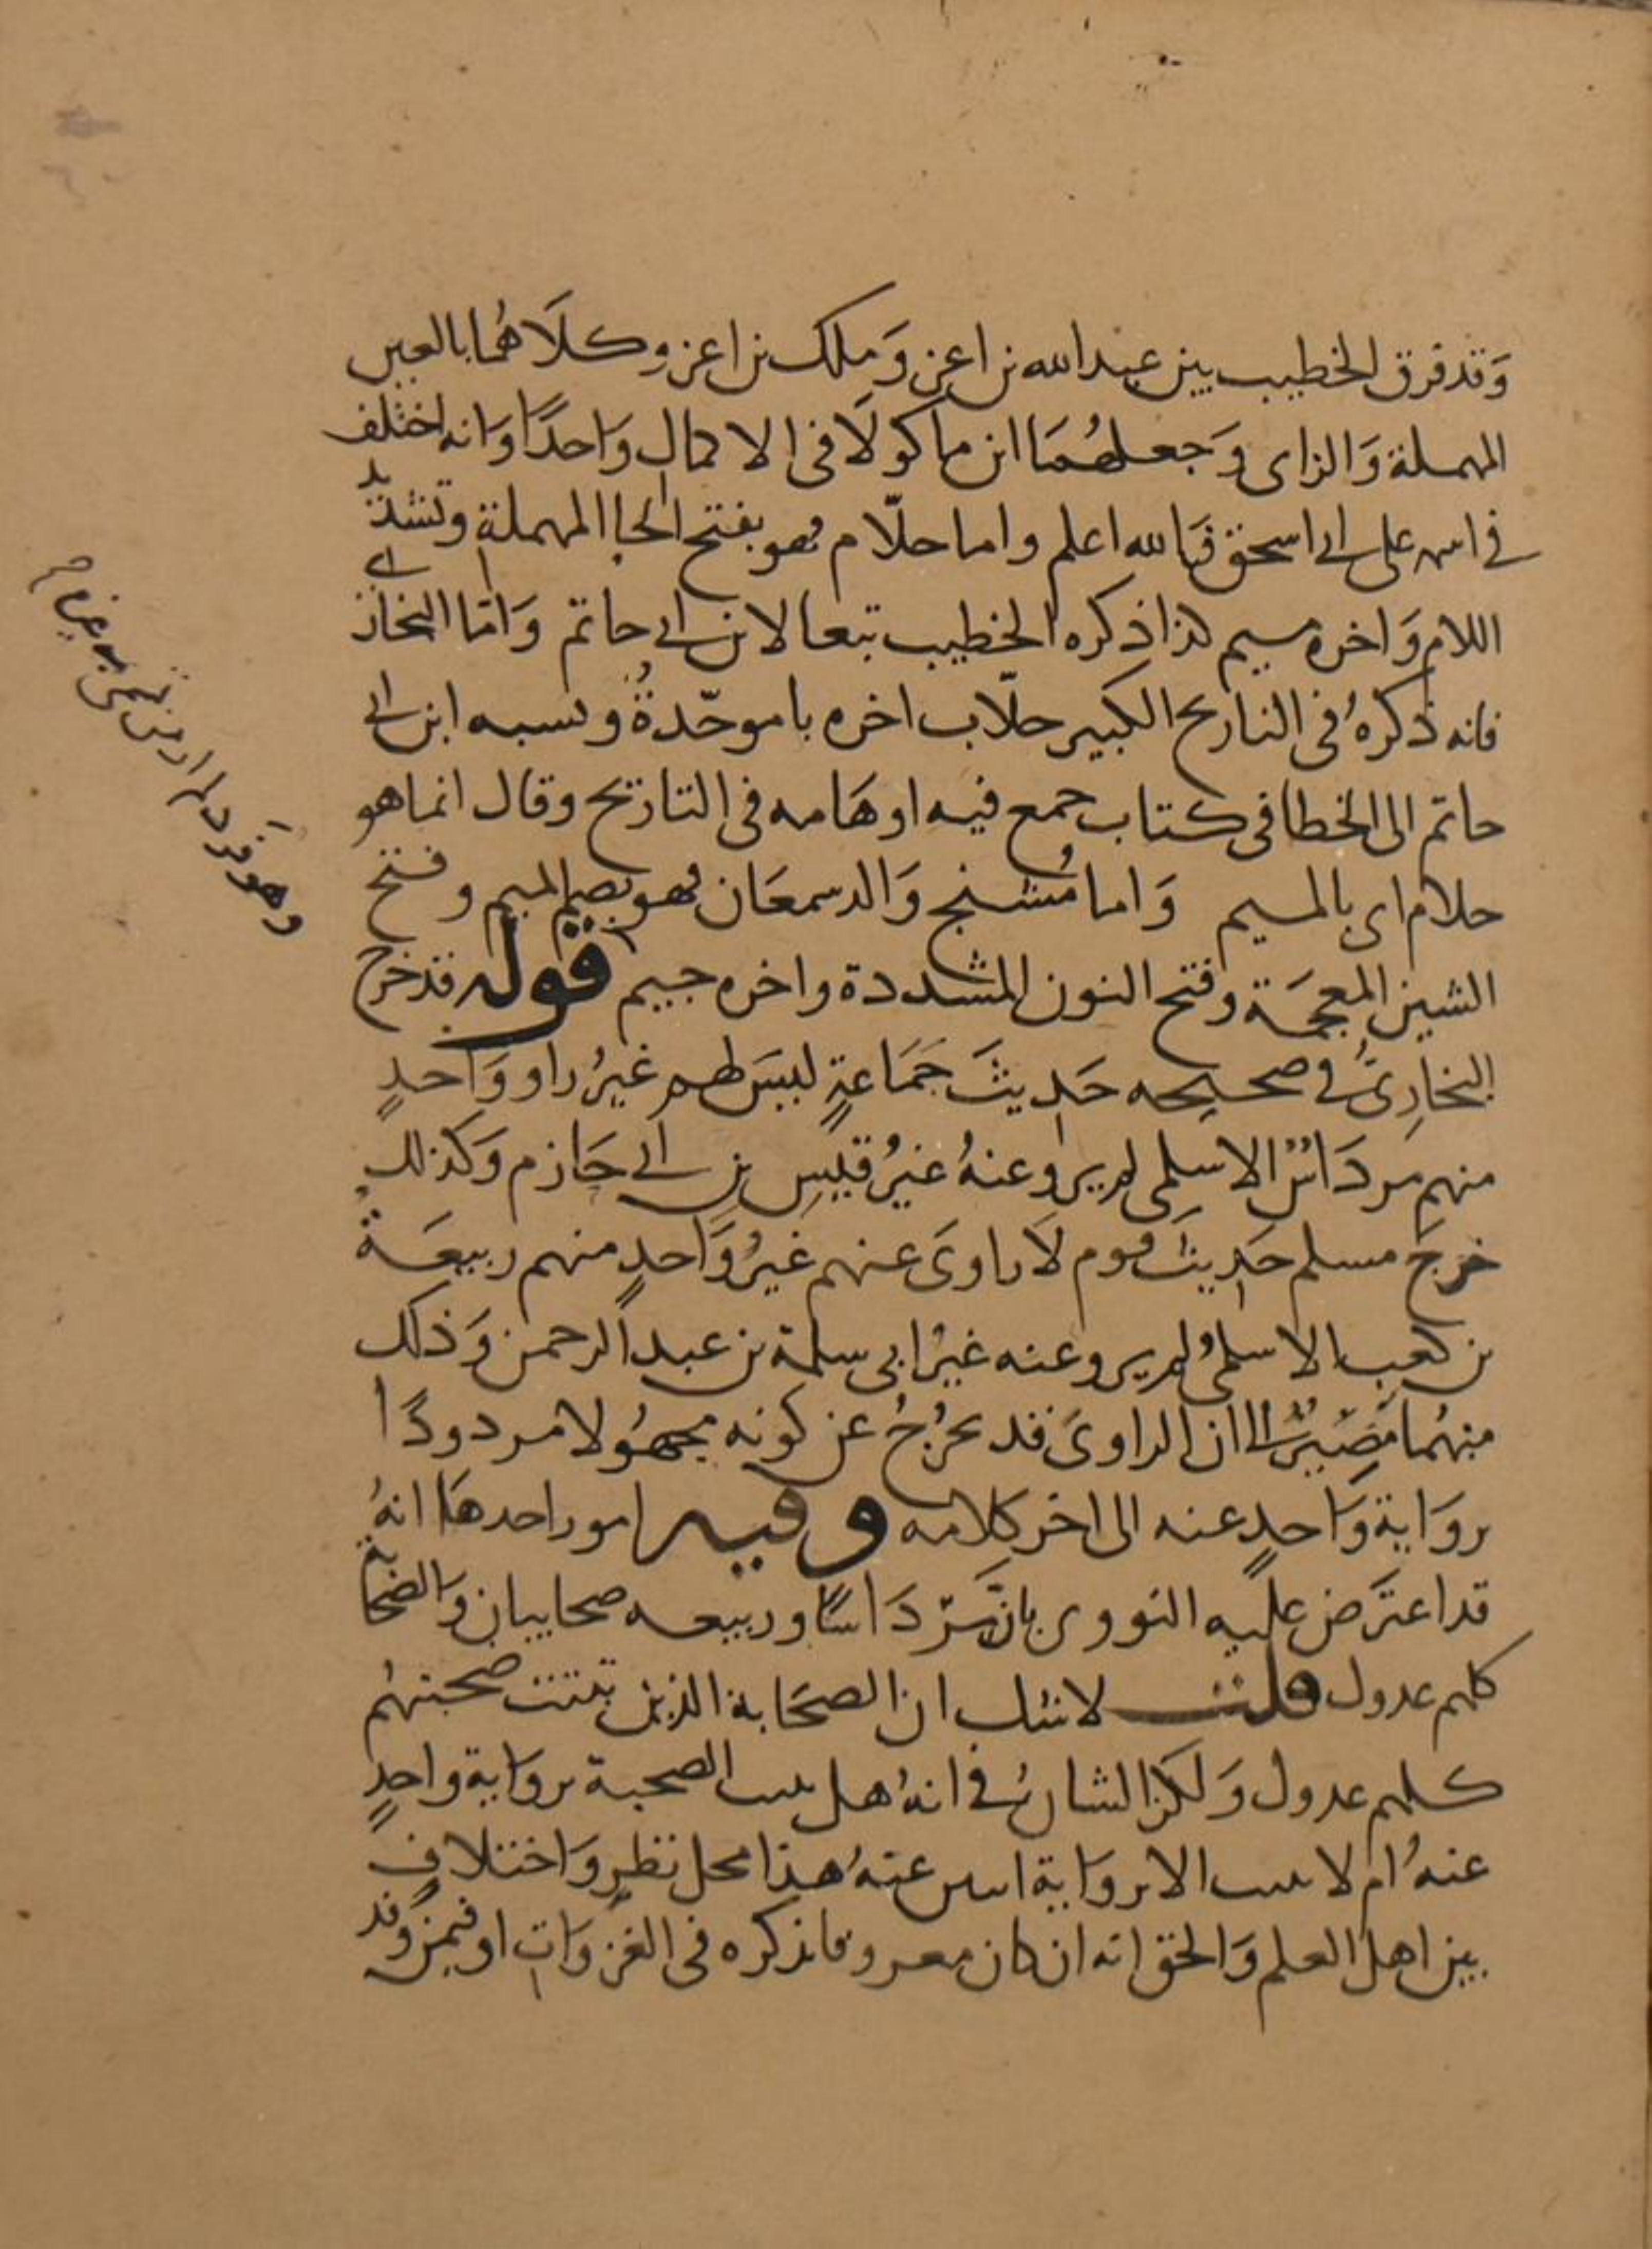 وَقد فرق الخطيب بين عبد الله بن اعز وَملك بن اعز وكلَاهُما بالعين
المهملة وَالزاى وَجعلهُمَا ابن ماكولَا فى الاكمال وَاحدًا وَانه اختلف
فى اسمه على ابى اسحق فَالله اعلم واما حلّام فهو بفتح الحا المهملة وتشديد
اللام وَاخره ميم كذا ذكره الخطيب تبعا لابن ابى حاتم وَامّا البخارى
فانه ذكرهُ فى التاريح الكبير حلّاب اخره با موحّدةُ ونسبه ابن ابى
حاتم الى الخطا فى كتاب جمع فيه اوهَامه فى التاريخ وقال انما هو
حلام اى بالميم وَاما مُشنج وَالد سمعَان فهو بضم الميم وفتح
الشين المعجمَة وفتح النون المشددة واخره جيم قوله فقد خرج
البخارِىُّ فى صحيحه حَدِيثَ جَمَاعةٍ ليسَ لهم غيرُ راو وَاحدٍ
منهم مردَاسٌ الاسلمى لم يرو عنهُ غيرُ قيسِ بنِ ابى حَازم وَكذلك
خرجَ مسلم حَدِيثَ قوم لَا راوىَ عنهم غيرُ وَاحدٍ منهم ربيعَةُ
بن كعب الاسلمىُ لم يرو عنه غيرُ ابى سلمة بن عبد الرحمن وَذلك
منهُما مَصِيرٌ الى ان الراوىَ قد يخرُجُ عن كونه مجهُولا مردودًا
بروَاية وَاحدٍ عنه الى اخر كلامه وفيه امور احدهَا انهُ
قد اعترَض عليه النووى بانَّ مرْدَاسًا وربيعه صحابيان وَالصحابة
كلهم عدول قلت لا شك ان الصحَابة الذين ثبتت صحبتهُم
كلهم عدول وَلكن الشانُ فى انهُ هل تثبت الصحبة بروَاية واحدٍ
عنهُ ام لا تثبت الا بروَاية اثنين عنهُ هذا محل نظرٍ وَاختلافٍ
بين اهل العلم وَالحق انه ان كان معروفا بذكره فى الغزوَاتِ او فيمن وفد
وهو فرد